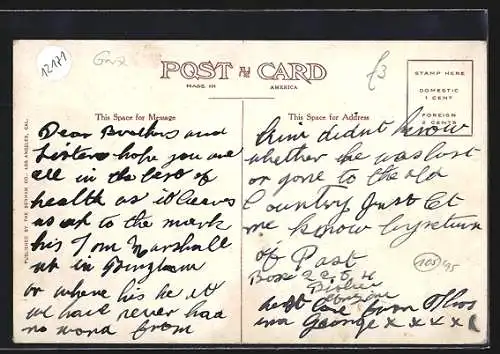 12171
Gruß
£3
POST CARD
MADE IN AMERICA
STAMP HERE
DOMESTIC
1 CENT
FOREIGN
2 CENTS
This Space for Message
This Space for Address
PUBLISHED BY THE BENHAM CO., LOS ANGELES, CAL.
Dear Brothers and
Sisters hope you are
all in the best of
health as it leaves
us at to the mark
his Tom Marshall
at in Bingham
or where his he it
we have never had
no word from
him didnt know
whether he was lost
or gone to the old
Country Just let
me know by return
of Post
Box 225 H
Bisbee
Arizona
best love from
and George x x x x
105/95